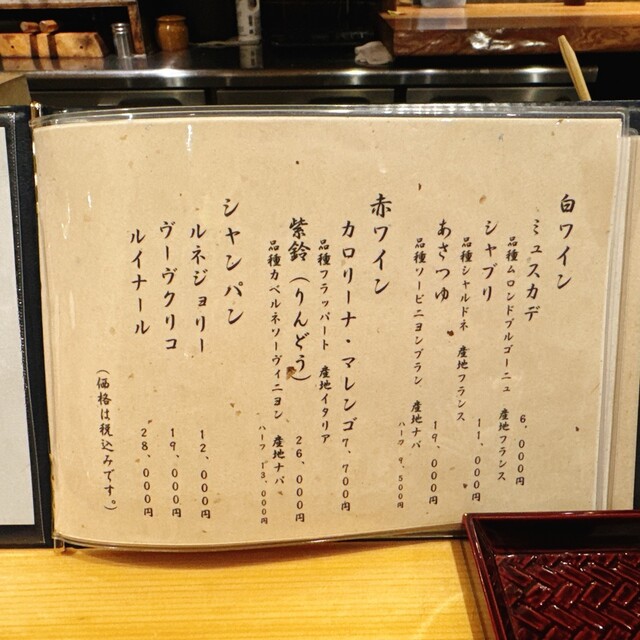 白ワイン
ミュスカデ 6,000円
品種ムロンドブルゴーニュ 産地フランス
シャブリ 11,000円
品種シャルドネ 産地フランス
あさつゆ 19,000円
品種ソービニヨンブラン 産地ナパ ハーフ 9,500円
赤ワイン
カロリーナ・マレンゴ 7,700円
品種フラッパート 産地イタリア
紫鈴（りんどう） 26,000円
品種カベルネソーヴィニヨン 産地ナパ ハーフ 13,000円
シャンパン
ルネジョリー 12,000円
ヴーヴクリコ 19,000円
ルイナール 28,000円
（価格は税込みです。）